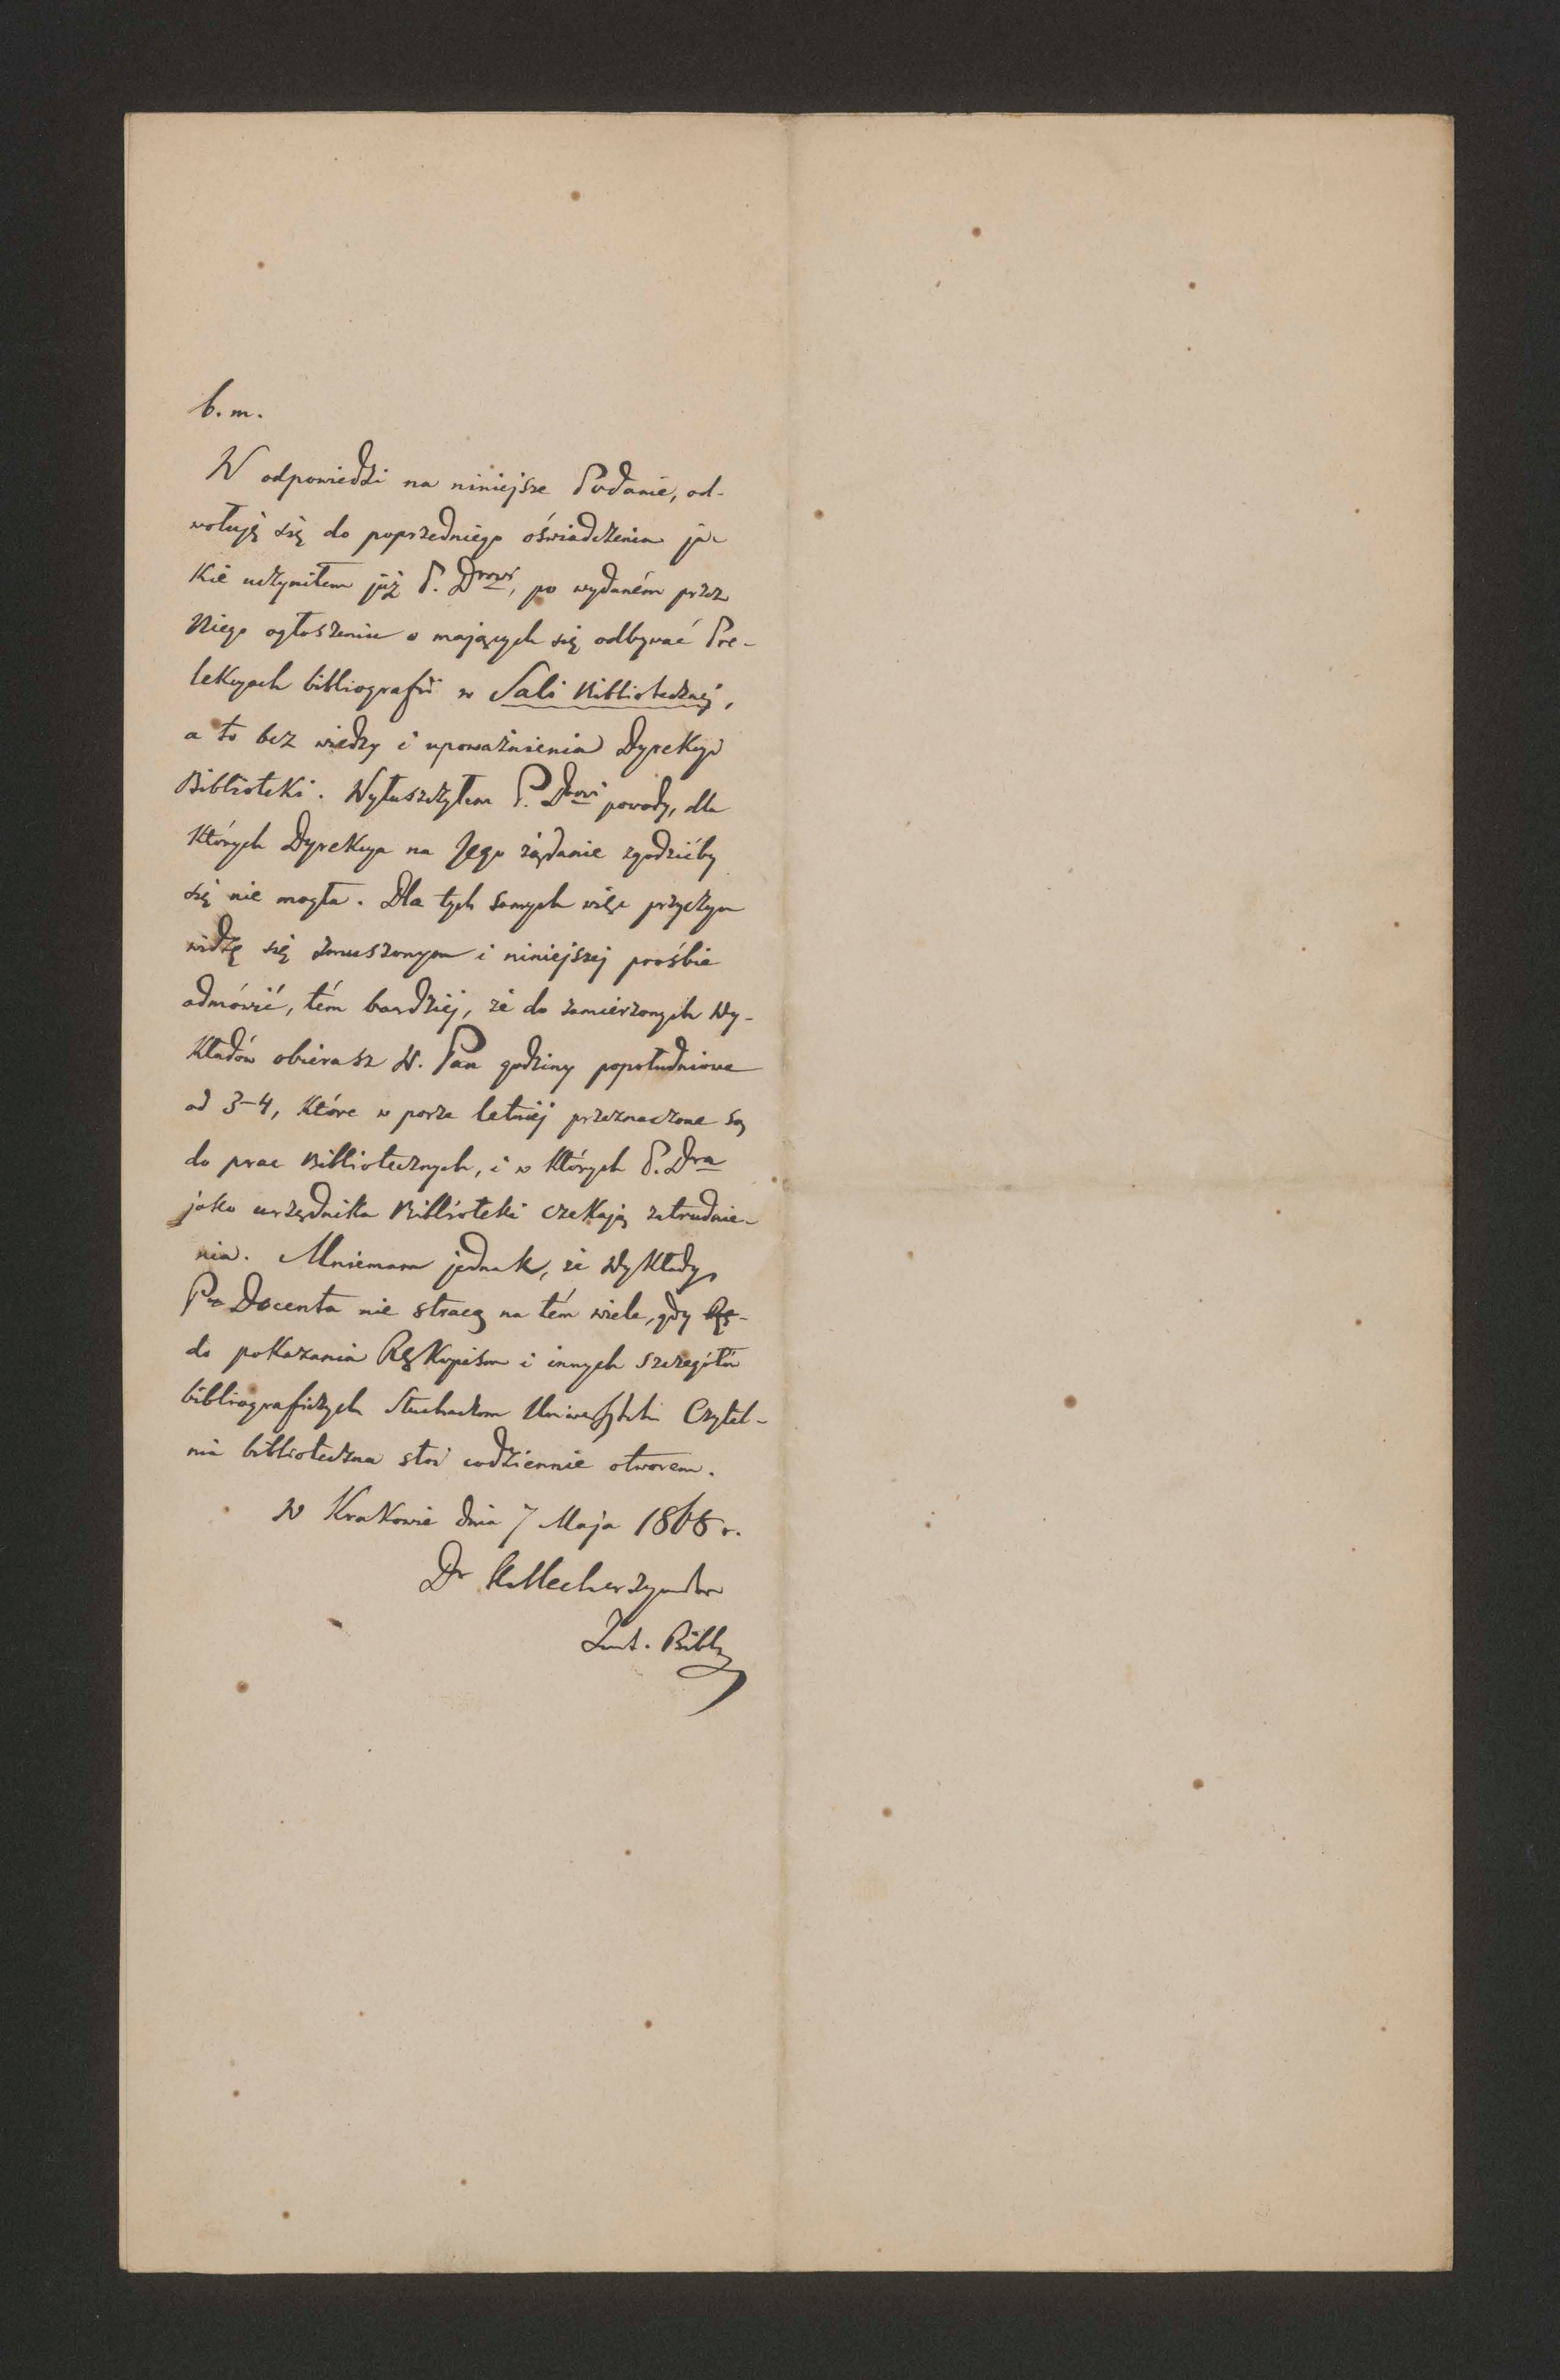 b. m.
W odpowiedzi na niniejsze Podanie, od-
wołuję się do poprzedniego oświadczenia ja-
kie uczyniłem już P. Drowi, po wydaném przez
Niego ogłoszeniu o mających się odbywać Pre-
lekcyach bibliografii w Sali Bibliotecznej,
a to bez wiedzy i upoważnienia Dyrekcyi
Biblioteki. Wyłuszczyłem P. Drowi powody, dla
których Dyrekcya na Jego żądanie zgodzićby
się nie mogła. Dla tych samych więc przyczyn
widzę się zmuszonym i niniejszej prośbie
odmówić, tém bardziej, że do zamierzonych Wy-
kładów obierasz W. Pan godziny popołudniowe
od 3-4, które w porze letniéj przeznaczone są
do prac Bibliotecznych, i w których P. Dra
jako urzędnika Biblioteki czekają zatrudnie-
nia. Mniemam jednak, że Wykłady
Pa Docenta nie stracą na tém wiele, gdy Rę-
do pokazania Rękopisów i innych szczegółów
bibliograficzych Słuchaczom Uniwersytetu Czytel-
nia biblioteczna stoi codziennie otworem.
W Krakowie dnia 7 Maja 1868 r.
Dr K Mecherzyński
Bibl